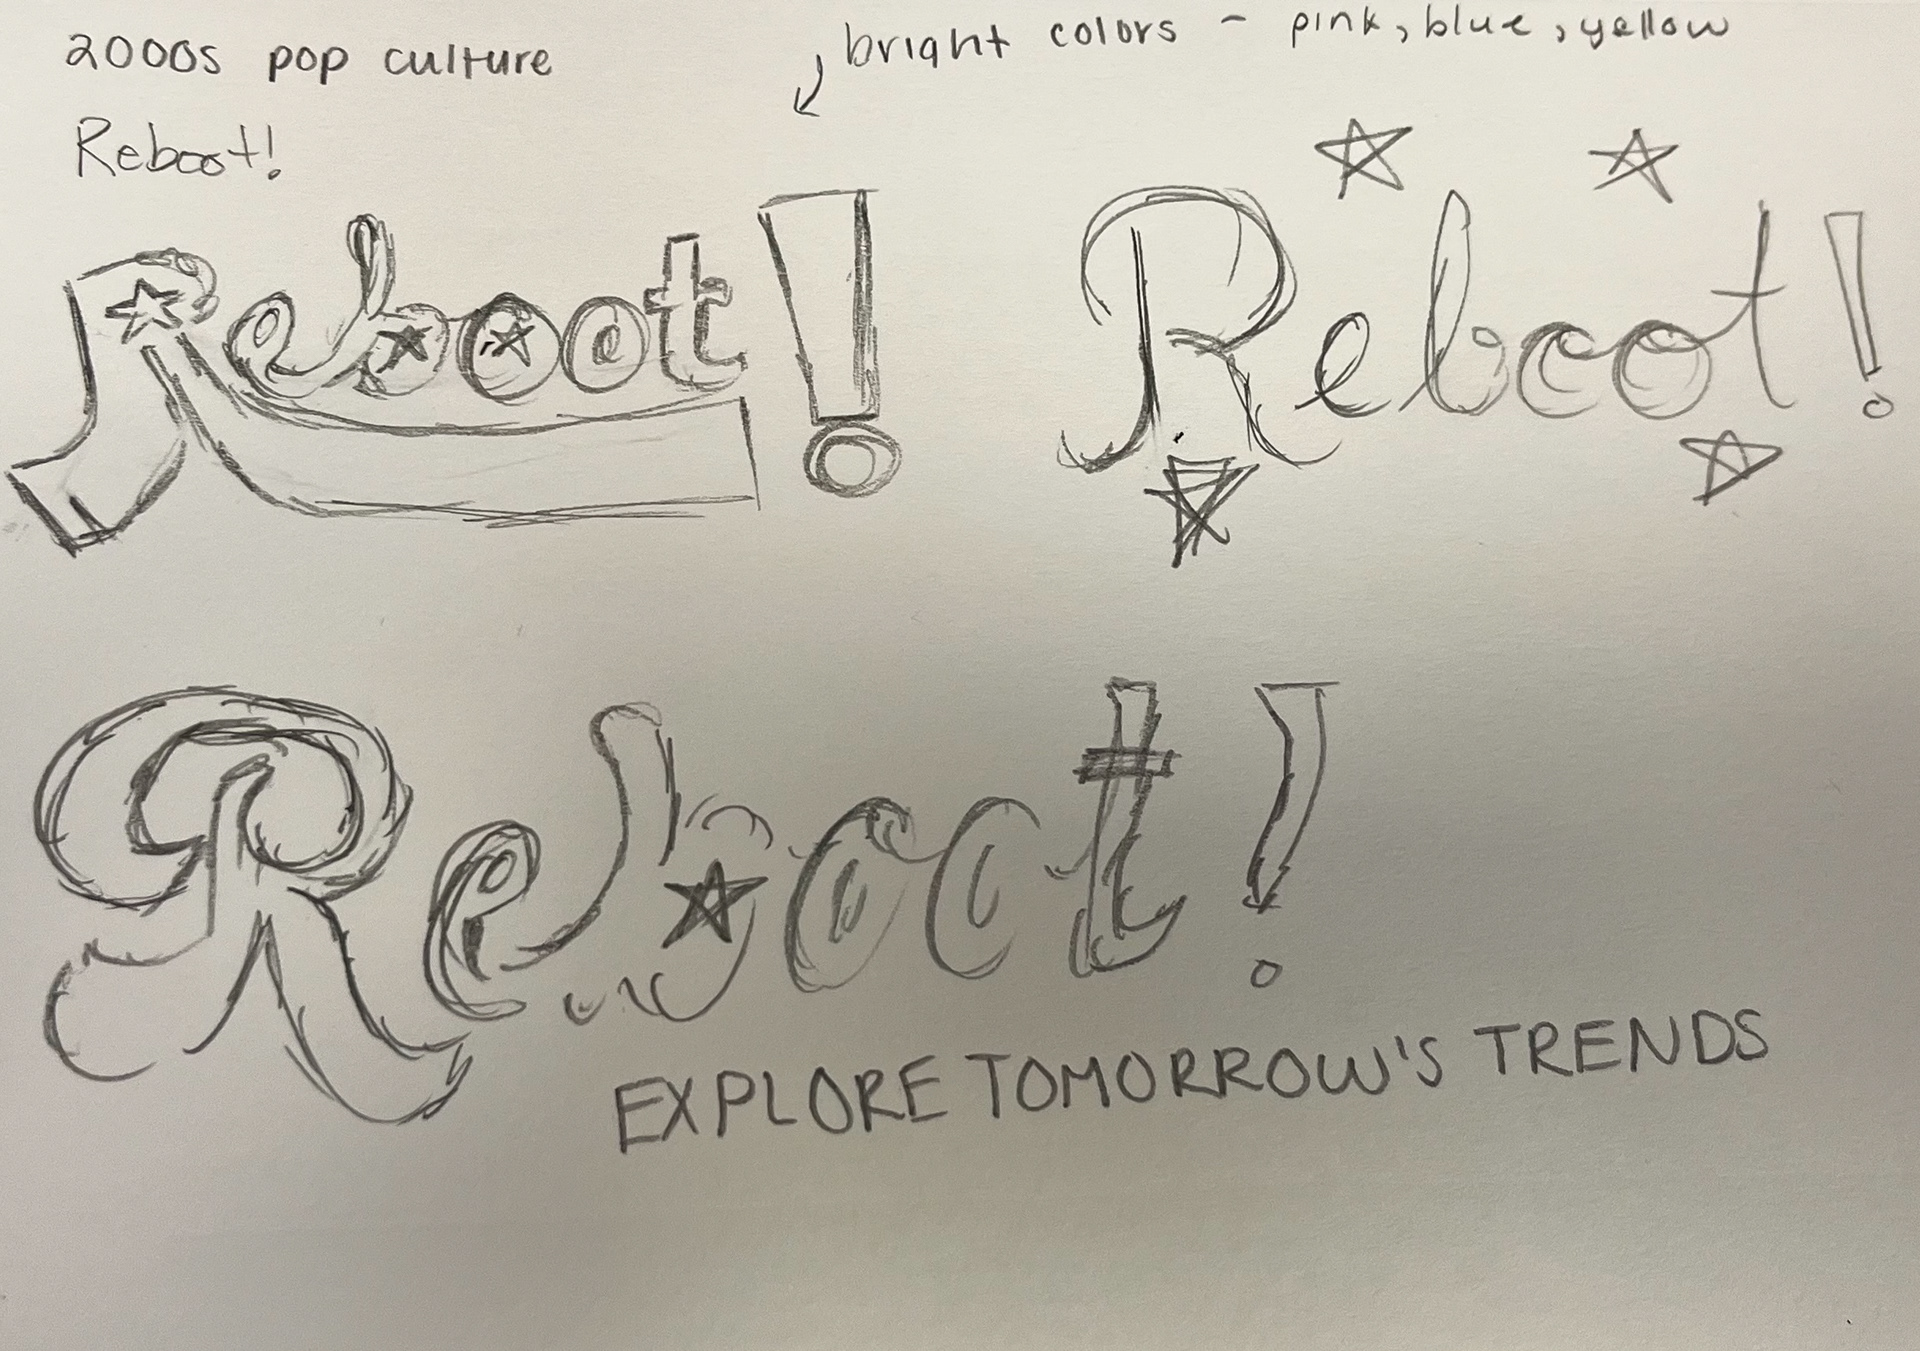 2000s pop culture
bright colors - pink, blue, yellow
Reboot!
Reboot!
Reboot!
Reboot!
EXPLORE TOMORROW'S TRENDS